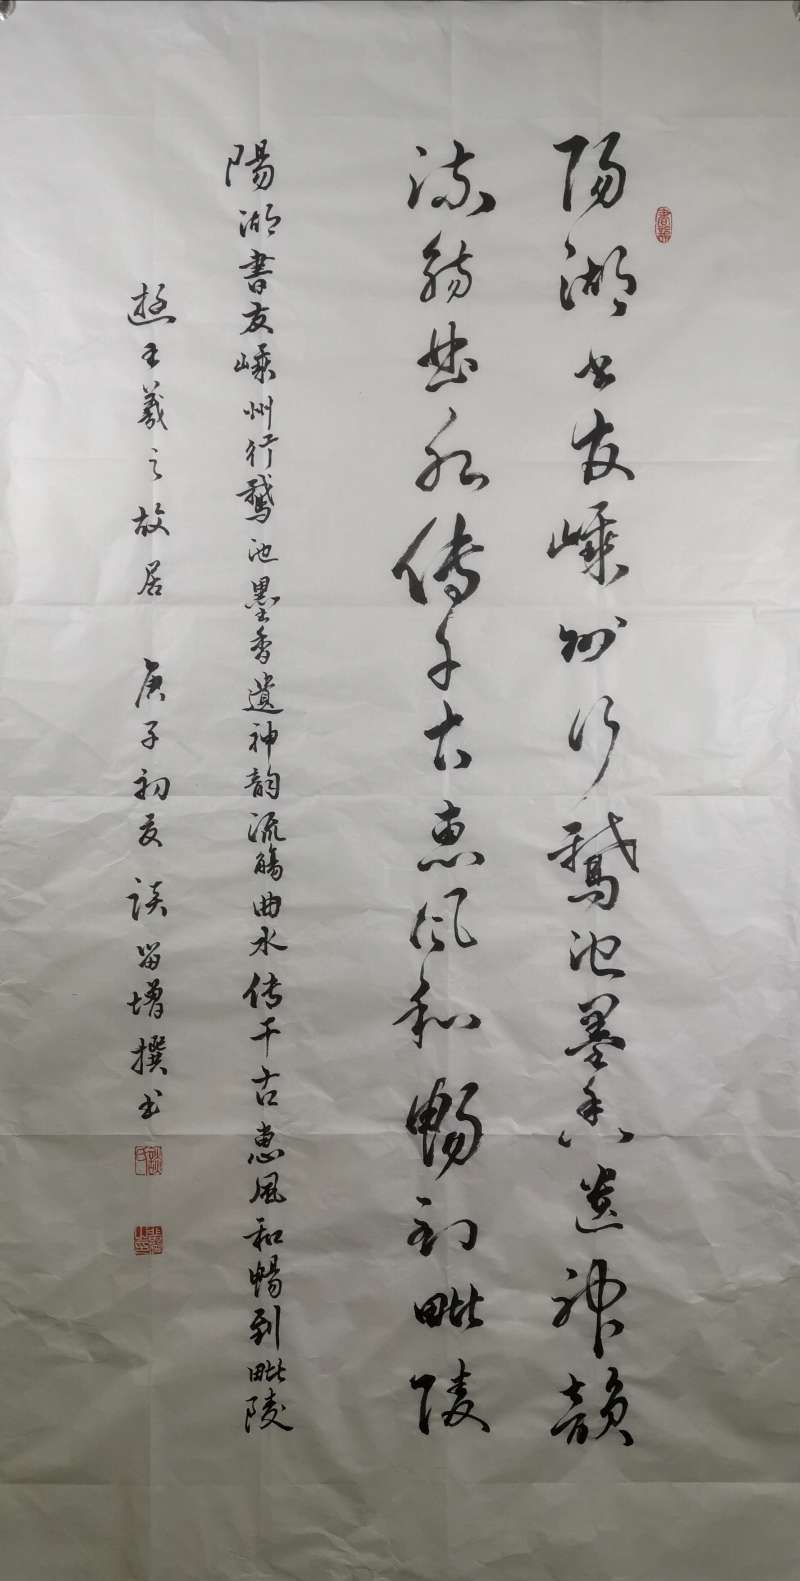 陽湖书友嵊州行鹅池墨香遗神韻
流觞曲水传千古惠风和畅到毗陵
陽湖書友嵊州行鵞池墨香遺神韵流觴曲水传千古惠風和暢到毗陵
遊王羲之故居 庚子初夏 談留增撰书